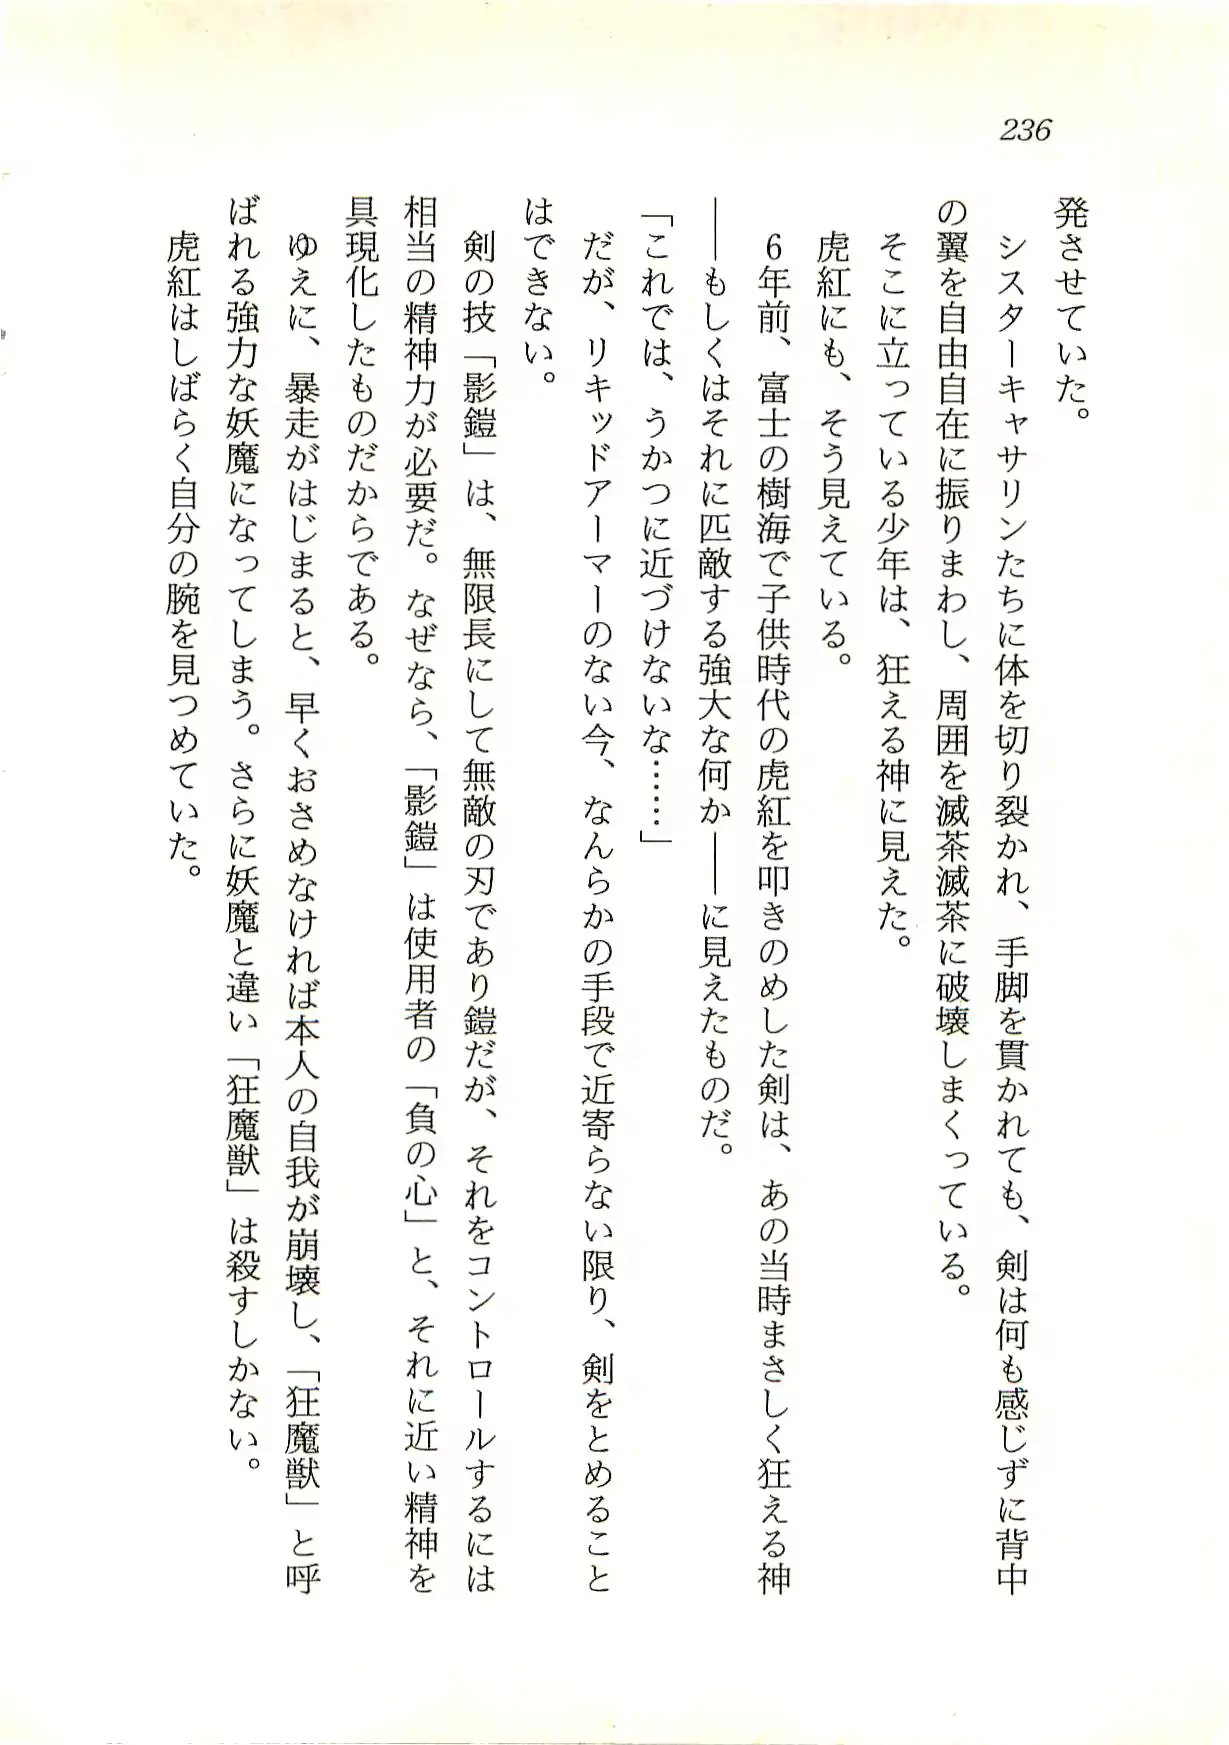 236
発させていた。
　シスターキャサリンたちに体を切り裂かれ、手脚を貫かれても、剣は何も感じずに背中
の翼を自由自在に振りまわし、周囲を滅茶滅茶に破壊しまくっている。
　そこに立っている少年は、狂える神に見えた。
　虎紅にも、そう見えている。
　6年前、富士の樹海で子供時代の虎紅を叩きのめした剣は、あの当時まさしく狂える神
――もしくはそれに匹敵する強大な何か――に見えたものだ。
「これでは、うかつに近づけないな……」
　だが、リキッドアーマーのない今、なんらかの手段で近寄らない限り、剣をとめること
はできない。
　剣の技「影鎧」は、無限長にして無敵の刃であり鎧だが、それをコントロールするには
相当の精神力が必要だ。なぜなら、「影鎧」は使用者の「負の心」と、それに近い精神を
具現化したものだからである。
　ゆえに、暴走がはじまると、早くおさめなければ本人の自我が崩壊し、「狂魔獣」と呼
ばれる強力な妖魔になってしまう。さらに妖魔と違い「狂魔獣」は殺すしかない。
　虎紅はしばらく自分の腕を見つめていた。